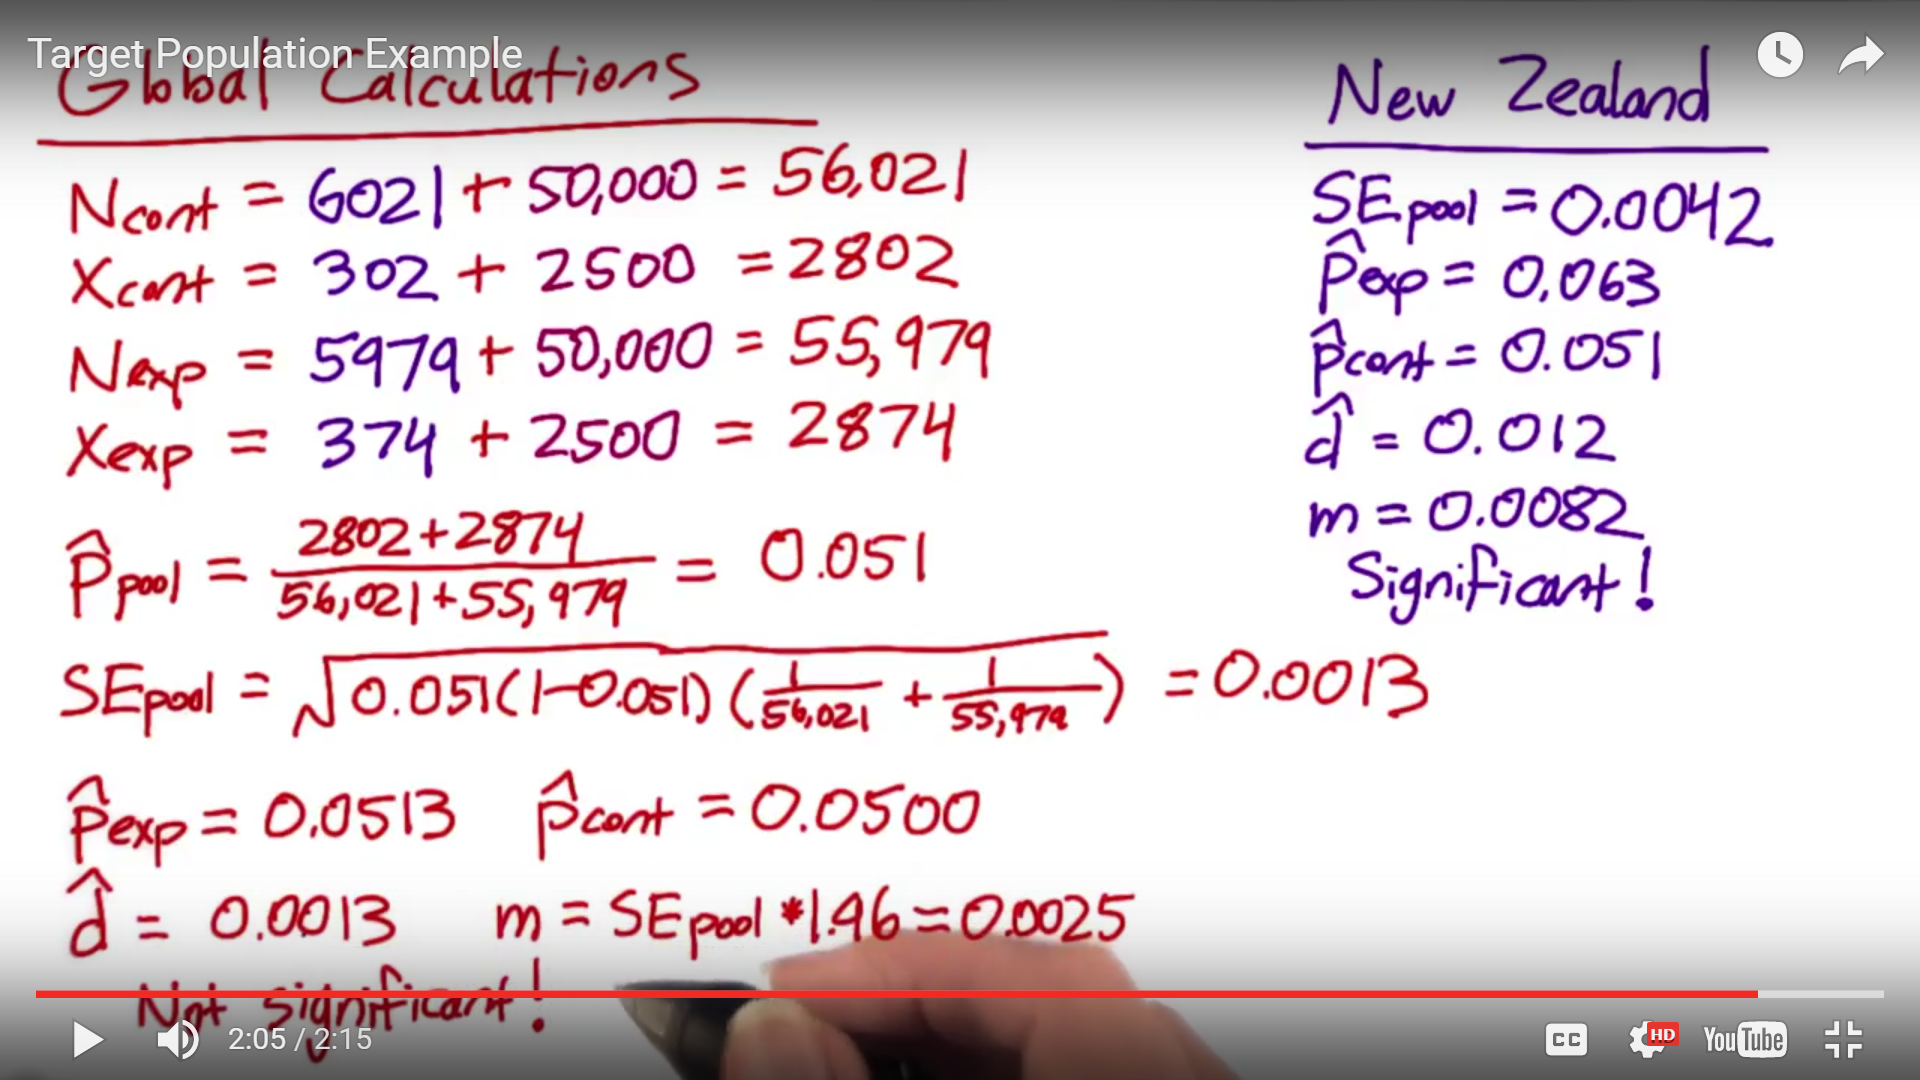 Target Population Example
Global Calculations
Ncont = 6021 + 50,000 = 56,021
Xcont = 302 + 2500 = 2802
Nexp = 5979 + 50,000 = 55,979
Xexp = 374 + 2500 = 2874
p̂pool = 2802+2874 / 56,021+55,979 = 0.051
SEpool = √0.051(1-0.051)(1/56,021 + 1/55,979) = 0.0013
p̂exp = 0.0513 p̂cont = 0.0500
d̂ = 0.0013 m = SEpool * 1.96 = 0.0025
Not significant!
New Zealand
SEpool = 0.0042
p̂exp = 0.063
p̂cont = 0.051
d̂ = 0.012
m = 0.0082
Significant!
2:05 / 2:15
CC
HD
YouTube